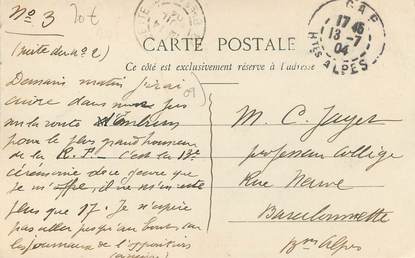 No 3
20f
(suite du no 2)
GAP
17 45
13-7
04
Htes ALPES
CARTE POSTALE
Ce côté est exclusivement réserve à l'adresse
Demain matin j'irai
encore dans
sur la route d'Embrun
pour le plus grand honneur
de la R. F. C'est la 13e
cérémonie de ce genre que
je m'offre, il ne m'en reste
plus que 17. Je n'espère
pas aller jusqu'au bout
les journaux de l'opposition
M. C. Jayet
professeur collège
Rue Neuve
Barcelonnette
Bses Alpes